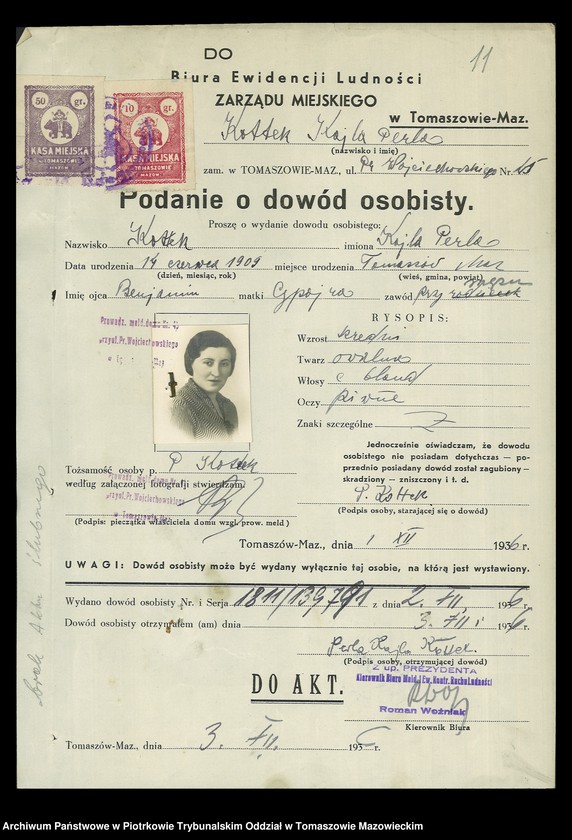 DO
11
Biura Ewidencji Ludności
ZARZĄDU MIEJSKIEGO
w Tomaszowie-Maz.
50 gr.
KASA MIEJSKA
W TOMASZOWIE
MAZOW.
10 gr.
KASA MIEJSKA
W TOMASZOWIE
MAZOW.
Kottek Kajla Perla
(nazwisko i imię)
zam. w TOMASZOWIE-MAZ., ul. Pr. Wojciechowskiego Nr. 45
Podanie o dowód osobisty.
Proszę o wydanie dowodu osobistego:
Nazwisko Kottek imiona Kajla Perla
Data urodzenia 14 czerwca 1909 miejsce urodzenia Tomaszów Maz
(dzień, miesiąc, rok) (wieś, gmina, powiat)
Imię ojca Benjamin matki zawód przy
RYSOPIS:
Wzrost średni
Twarz owalna
Włosy c blond
Oczy piwne
Znaki szczególne
Prowadz. meld. domu Nr. 45
przy ul. Pr. Wojciechowskiego
Jednocześnie oświadczam, że dowodu
osobistego nie posiadam dotychczas — po-
przednio posiadany dowód został zagubiony -
skradziony - zniszczony i t. d.
P. Kottek
(Podpis osoby, starającej się o dowód)
Tożsamość osoby p. P Kottek
według załączonej fotografji stwierdzam.
Prowadz. meld. domu Nr.
przy ul. Pr. Wojciechowskiego
w Tomaszowie-Maz.
(Podpis: pieczątka właściciela domu wzgl. prow. meld )
Tomaszów-Maz., dnia 1 XII 1936 r.
UWAGI: Dowód osobisty może być wydany wyłącznie tej osobie, na którą jest wystawiony.
Wydano dowód osobisty Nr. i Serja 1811/139791 z dnia 2. XII. 1936 r.
Dowód osobisty otrzymałem (am) dnia 3. XII. 1936 r.
Perla Kajla Kottek.
(Podpis osoby, otrzymującej dowód)
Z up. PREZYDENTA
Kierownik Biura Meld. i Ew. Kontr. Ruchu Ludności
DO AKT.
Roman Woźniak
Kierownik Biura
Tomaszów-Maz., dnia 3. XII. 1936 r.
brak Aktu ślubnego
Archiwum Państwowe w Piotrkowie Trybunalskim Oddział w Tomaszowie Mazowieckim